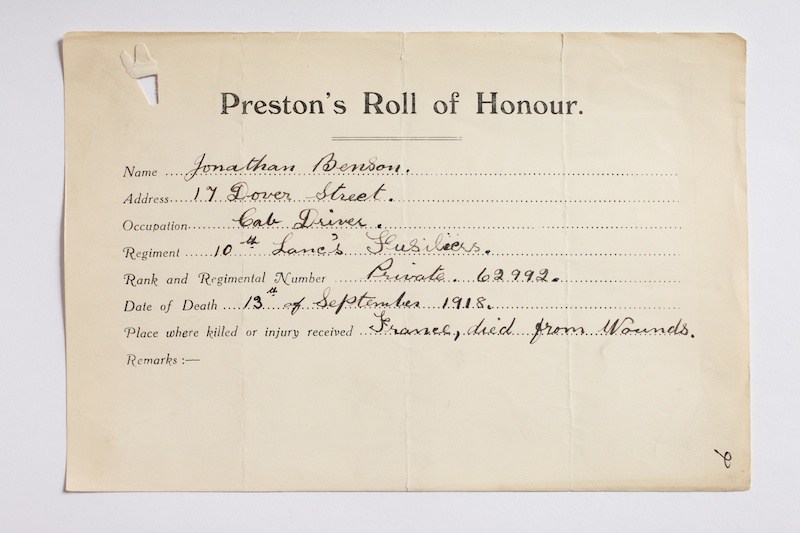 Preston's Roll of Honour.
Name Jonathan Benson.
Address 17 Dover Street.
Occupation Cab Driver.
Regiment 10th Lanc's Fusiliers.
Rank and Regimental Number Private. 62992.
Date of Death 13th of September 1918.
Place where killed or injury received France, died from Wounds.
Remarks :—